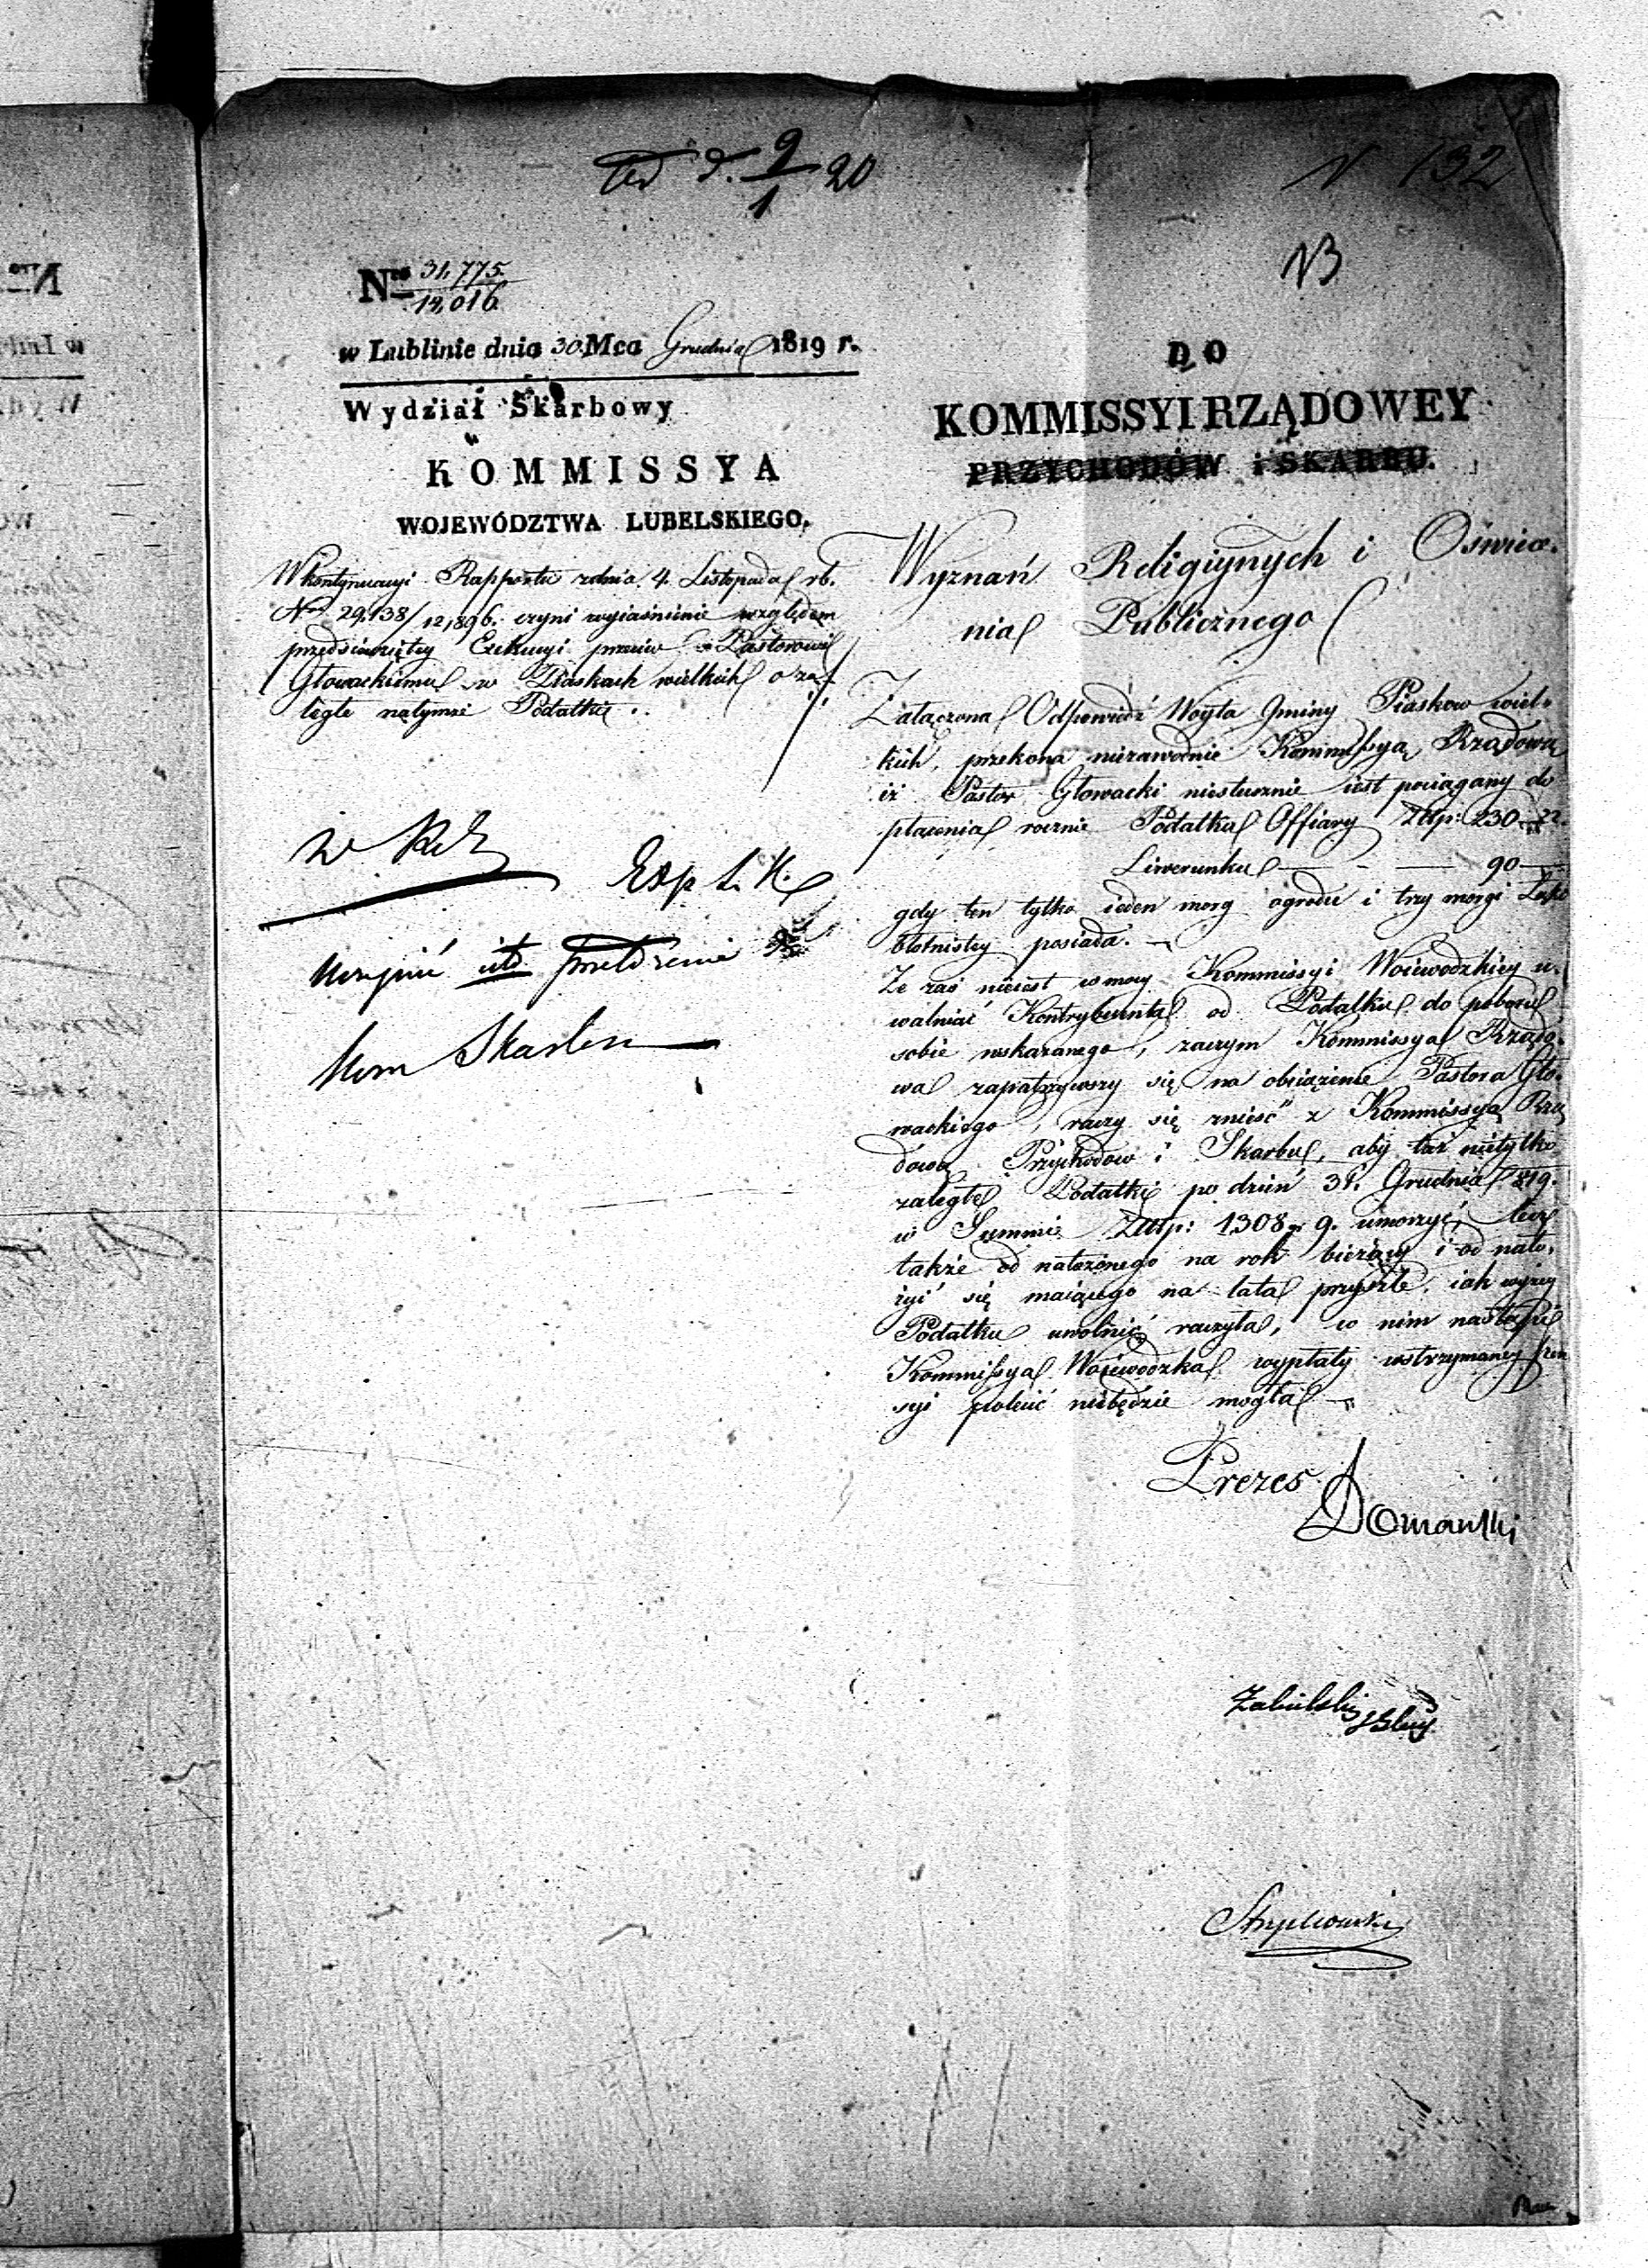 d. 9/1 20
N 132
NB
Nro 31,775./14,016
w Lublinie dnia 30 Mca Grudnia 1819 r.
Wydział Skarbowy
KOMMISSYA
WOJEWÓDZTWA LUBELSKIEGO.
W kontynuacyi Rapportu zdnia 4. Listopada rb.
Nro 29,138/12,896. czyni wyiaśnienie względem
przedsięwziętey Exekucyi przeciw Pastorowi
Głowackiemu w Piaskach wielkich o za-
ległe natymże Podatki.
Exp
Skarbu
DO
KOMMISSYI RZĄDOWEY
PRZYCHODÓW i SKARBU.
Wyznań Religiynych i Oświece-
nia Publicznego
Załączona Odpowiedź Woyta Gminy Piaskow wiel-
kich, przekona niezawodnie Kommissyą Rządową
iż Pastor Głowacki niesłusznie iest pociągany do
płacenia rocznie Podatku Offiary Złłp: 230 22.
Liwerunku — — 90 —
gdy ten tylko ieden morg ogrodu i trzy morgi Łąki
błotnistey posiada.
Ze zaś nieiest wmocy Kommissyi Woiewodzkiey u-
walniać Kontrybuenta od Podatku do poboru
sobie wskazanego, zaczym Kommissya Rządo-
wa zapatrzywszy się na obciążenie Pastora Gło-
wackiego, raczy się znieść z Kommissyą Rzą
dową Przychodow i Skarbu, aby taż nietylko
zaległe Podatki po dzień 31. Grudnia 1819.
w Summie Złłp: 1308 gr 9. umorzyć, lecz
także od nałożonego na rok bieżący i od nało-
żyć się maiącego na lata przyszłe, iak wyżey
Podatku uwolnić raczyła, w nim nastąpi
Kommissya Woiewodzka wypłaty wstrzymaney Pen
syi polecić niebędzie mogła
Prezes
Domański